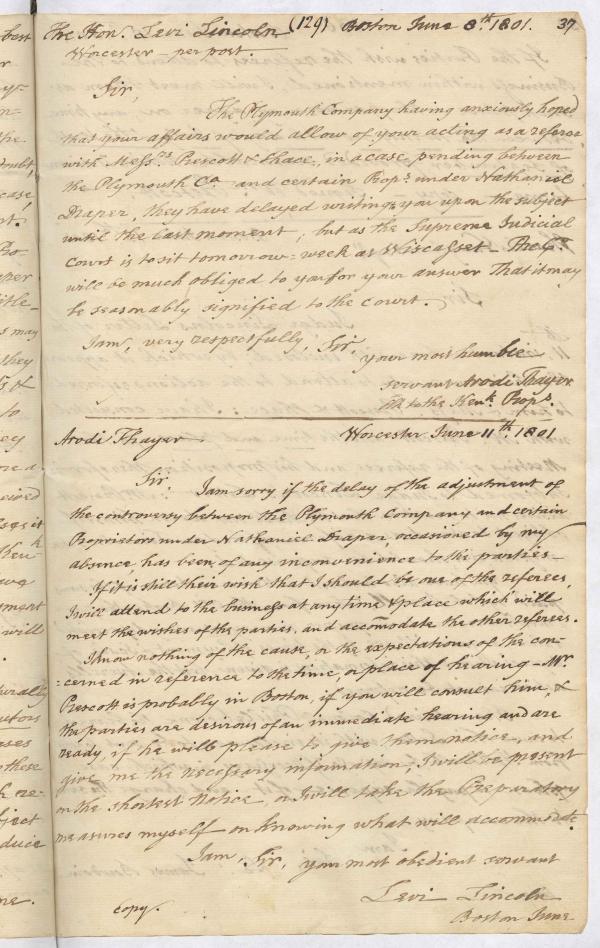 The Hon. Levi Lincoln (129) Boston June 8th. 1801. 37
Worcester - per post.
Sir,
The Plymouth Company having anxiously hoped
that your affairs would allow of your acting as a referee
with Messrs. Prescott & Thace, in a case pending between
the Plymouth Co. and certain Props. under Nathaniel
Draper, they have delayed writing you upon the subject
until the last moment, but as the Supreme Judicial
Court is to sit tomorrow-week at Wiscasset - The Co.
will be much obliged to you for your answer That it may
be seasonably signified to the court.
I am, very respectfully, Sir,
your most humble
servant Arodi Thayer
to the Kenk. Props.
Arodi Thayer. Worcester June 11th. 1801
Sir. I am sorry if the delay of the adjustment of
the controversy between the Plymouth Company and certain
Proprietors under Nathaniel Draper, occasioned by my
absence, has been of any inconvenience to the parties -
If it is still their wish that I should be one of the referees,
I will attend to the business at any time & place which will
meet the wishes of the parties, and accomodate the other referees.
I know nothing of the cause, or the expectations of the con-
-cerned in reference to the time, or place of hearing - Mr.
Prescott is probably in Boston, if you will consult him, &
the parties are desirous of an immediate hearing and are
ready, if he will please to give them notice, and
give me the necessary information, I will be present
on the shortest Notice, or I will take the Preparatory
measures myself on knowing what will accommodate.
I am, Sir, your most obedient servant
Levi Lincoln
copy. Boston June
best
doubt
case
may
they
to
will
these
ject
duce